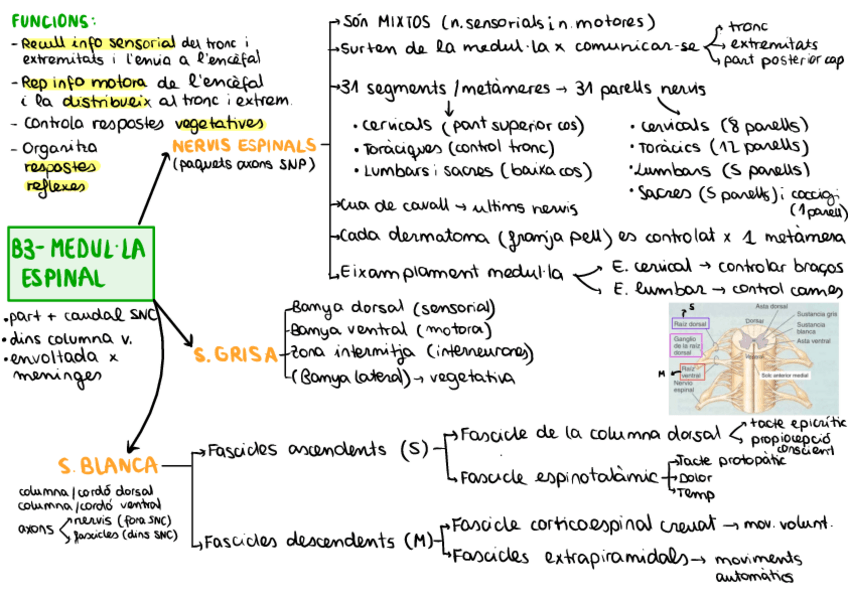 FUNCIONS:
- Recull info sensorial del tronc i
extremitats i l'envia a l'encèfal
- Rep info motora de l'encèfal
i la distribueix al tronc i extrem.
- Controla respostes vegetatives
- Organitza
respostes
reflexes
NERVIS ESPINALS
(paquets axons SNP)
Són MIXTOS (n. sensorials i n. motores)
Surten de la medul·la x comunicar-se
tronc
extremitats
part posterior cap
31 segments / metàmeres → 31 parells nervis
• cervicals (part superior cos)
• Toràciques (control tronc)
• Lumbars i sacres (baixa cos)
• cervicals (8 parells)
• Toràcics (12 parells)
• Lumbars (5 parells)
• Sacres (5 parells) i coccigi
(1 parell)
Cua de cavall → ultims nervis
Cada dermatoma (franja pell) es controlat x 1 metàmera
Eixamplament medul·la
E. cervical → controlar braços
E. lumbar → control cames
B3- MEDUL·LA
ESPINAL
• part + caudal SNC
• dins columna v.
• envoltada x
meninges
S. GRISA
Banya dorsal (sensorial)
Banya ventral (motora)
Zona intermitja (interneurones)
(Banya lateral) → vegetativa
S
?
Raíz dorsal
Ganglio
de la raíz
dorsal
M
Raíz
ventral
Nervio
espinal
Dorsal
Ventral
Asta dorsal
Sustancia gris
Sustancia
blanca
Asta ventral
Solc anterior medial
S. BLANCA
columna/cordó dorsal
columna/cordó ventral
axons
nervis (fora SNC)
fascicles (dins SNC)
Fascicles ascendents (S)
Fascicle de la columna dorsal
tacte epicrític
propiocepció
conscient
Fascicle espinotalàmic
Tacte protopàtic
Dolor
Temp
Fascicles descendents (M)
Fascicle corticoespinal creuat → mov. volunt.
Fascicles extrapiramidals → moviments
automàtics